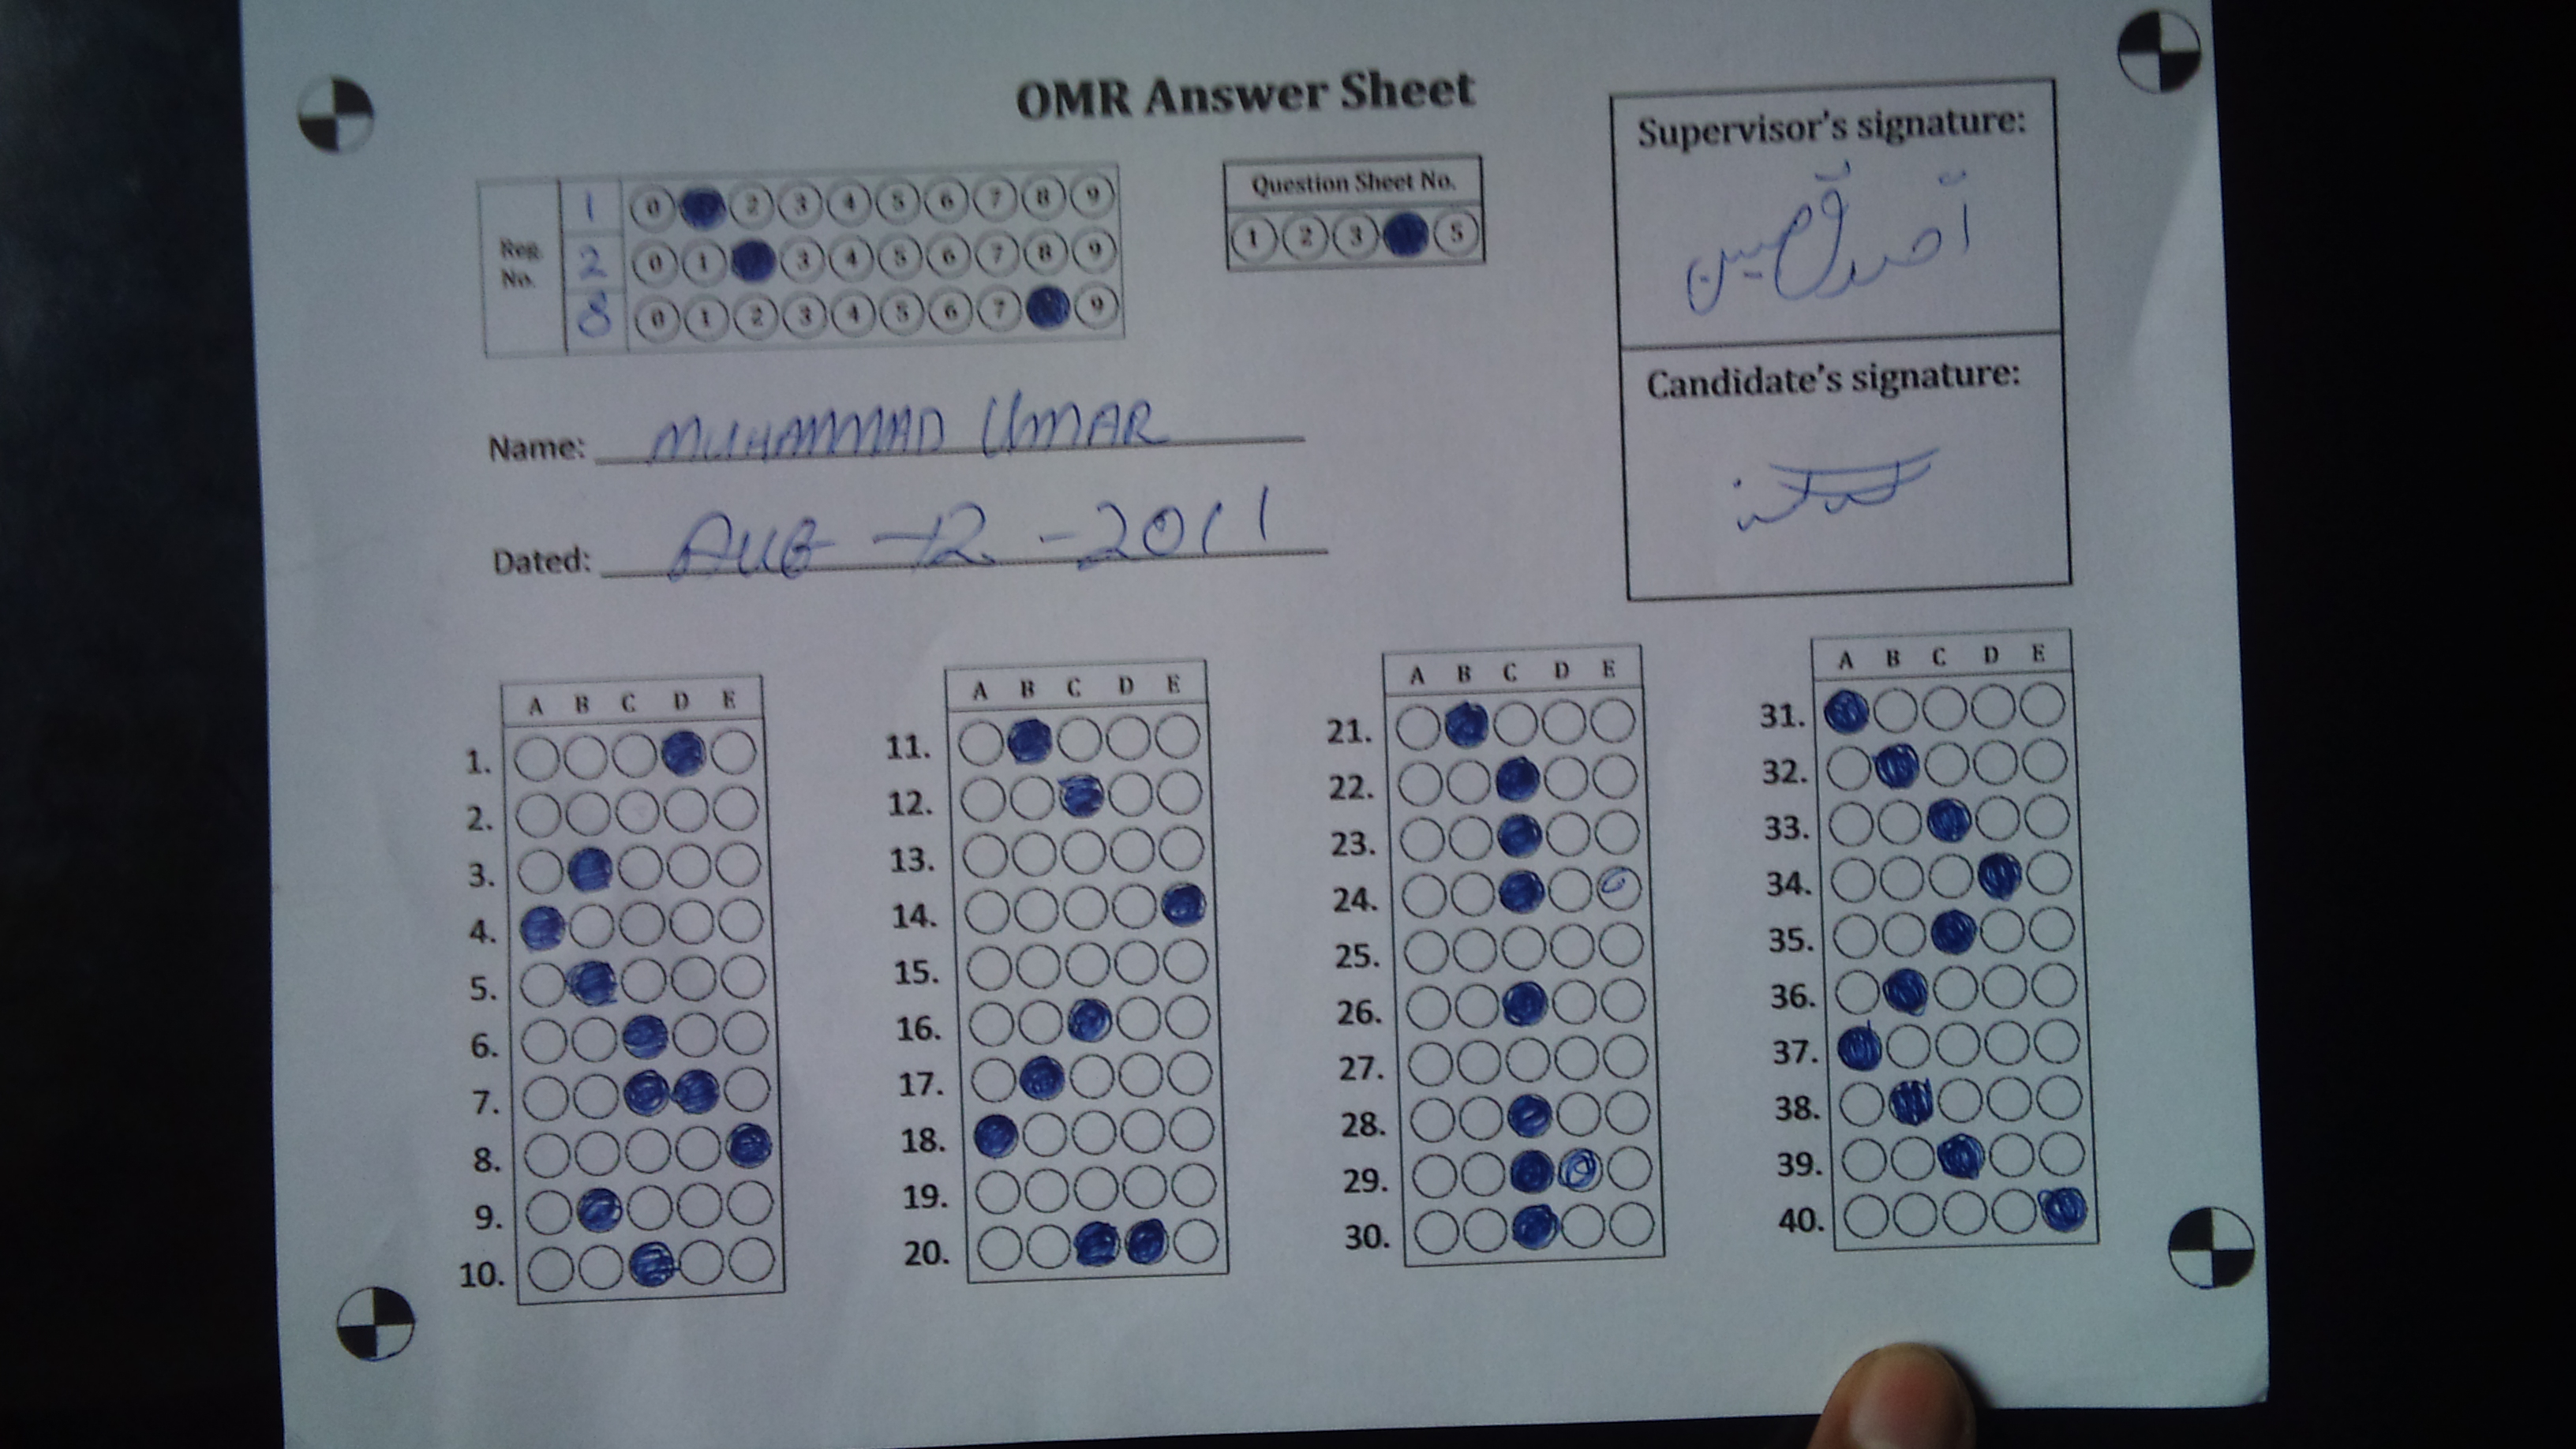 OMR Answer Sheet
Reg. No.
1 0 2 3 4 5 6 7 8 9
2 0 1 3 4 5 6 7 8 9
8 0 1 2 3 4 5 6 7 9
Question Sheet No.
1 2 3 5
Supervisor's signature:
Candidate's signature:
Name: MUHAMMAD UMAR
Dated: AUG -12 -2011
A B C D E
1.
2.
3.
4.
5.
6.
7.
8.
9.
10.
A B C D E
11.
12.
13.
14.
15.
16.
17.
18.
19.
20.
A B C D E
21.
22.
23.
24.
25.
26.
27.
28.
29.
30.
A B C D E
31.
32.
33.
34.
35.
36.
37.
38.
39.
40.